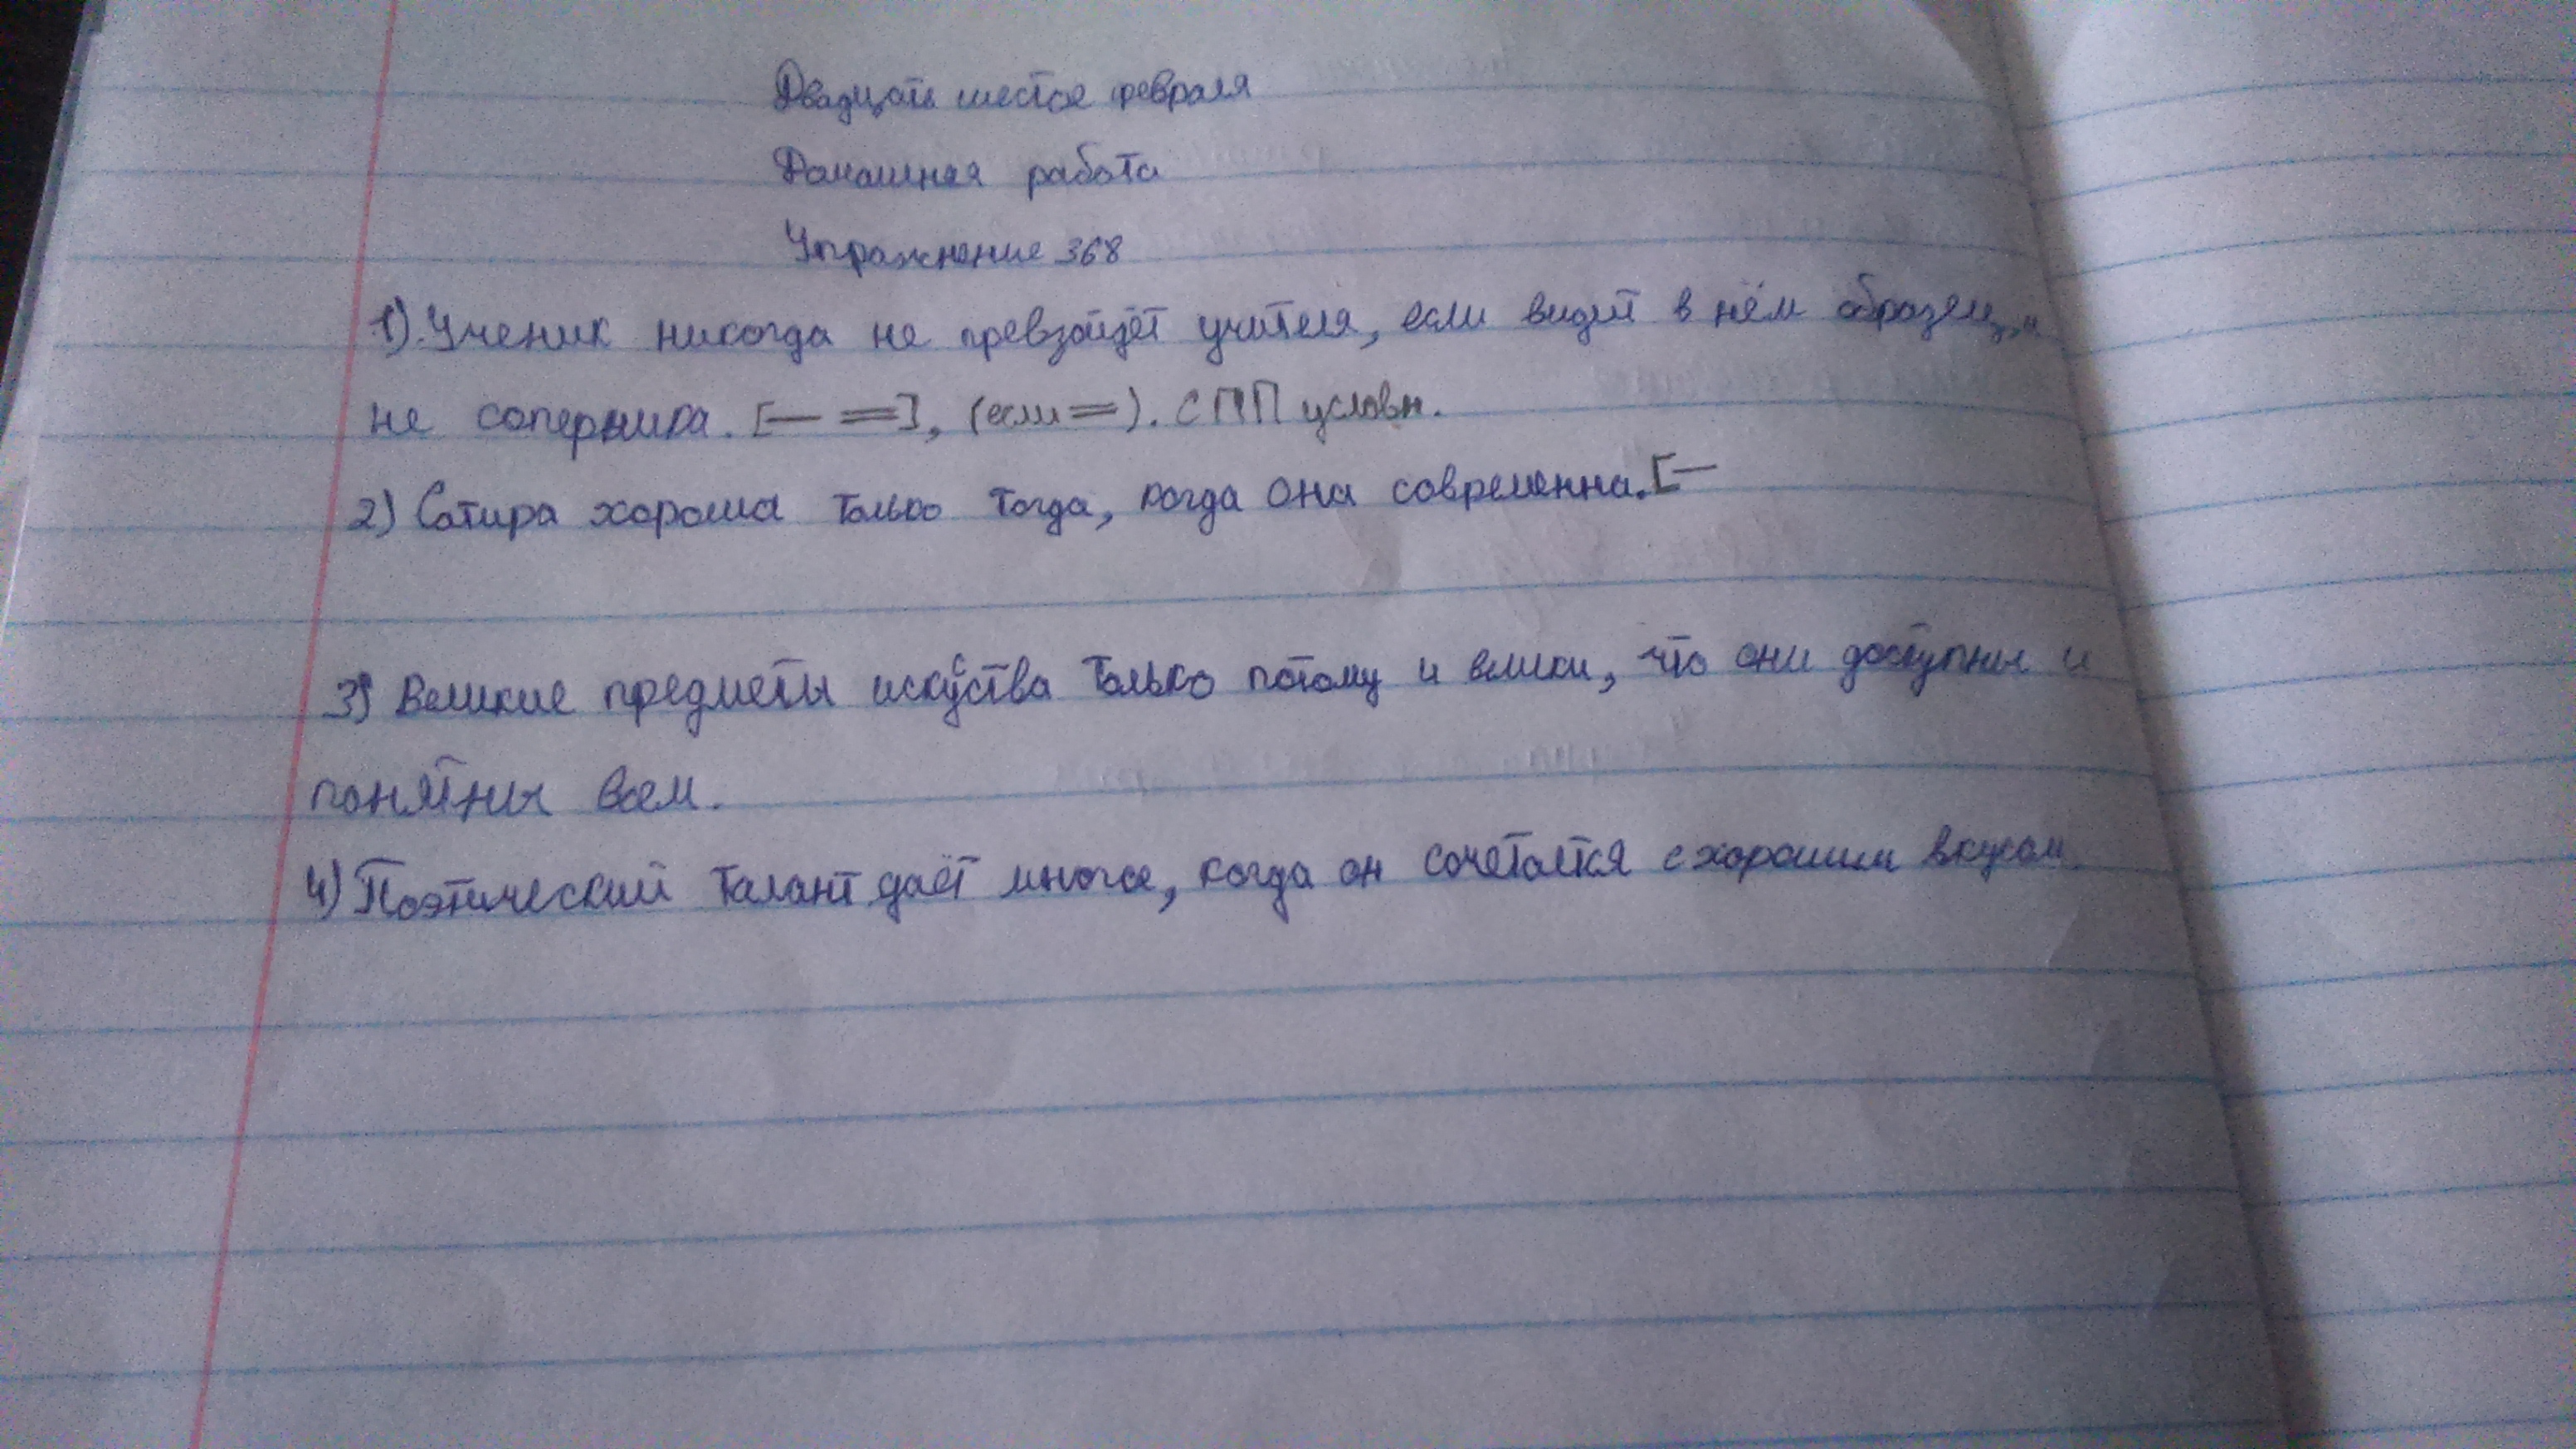 Двадцать шестое февраля
Домашняя работа
Упражнение 368
1). Ученик никогда не превзойдёт учителя, если видит в нём образец, а
не соперника. [— =], (если =). СПП условн.
2) Сатира хороша только тогда, когда она современна. [—
3) Великие предметы искусства только потому и велики, что они доступны и
понятны всем.
4) Поэтический талант даёт многое, когда он сочетается с хорошим вкусом.